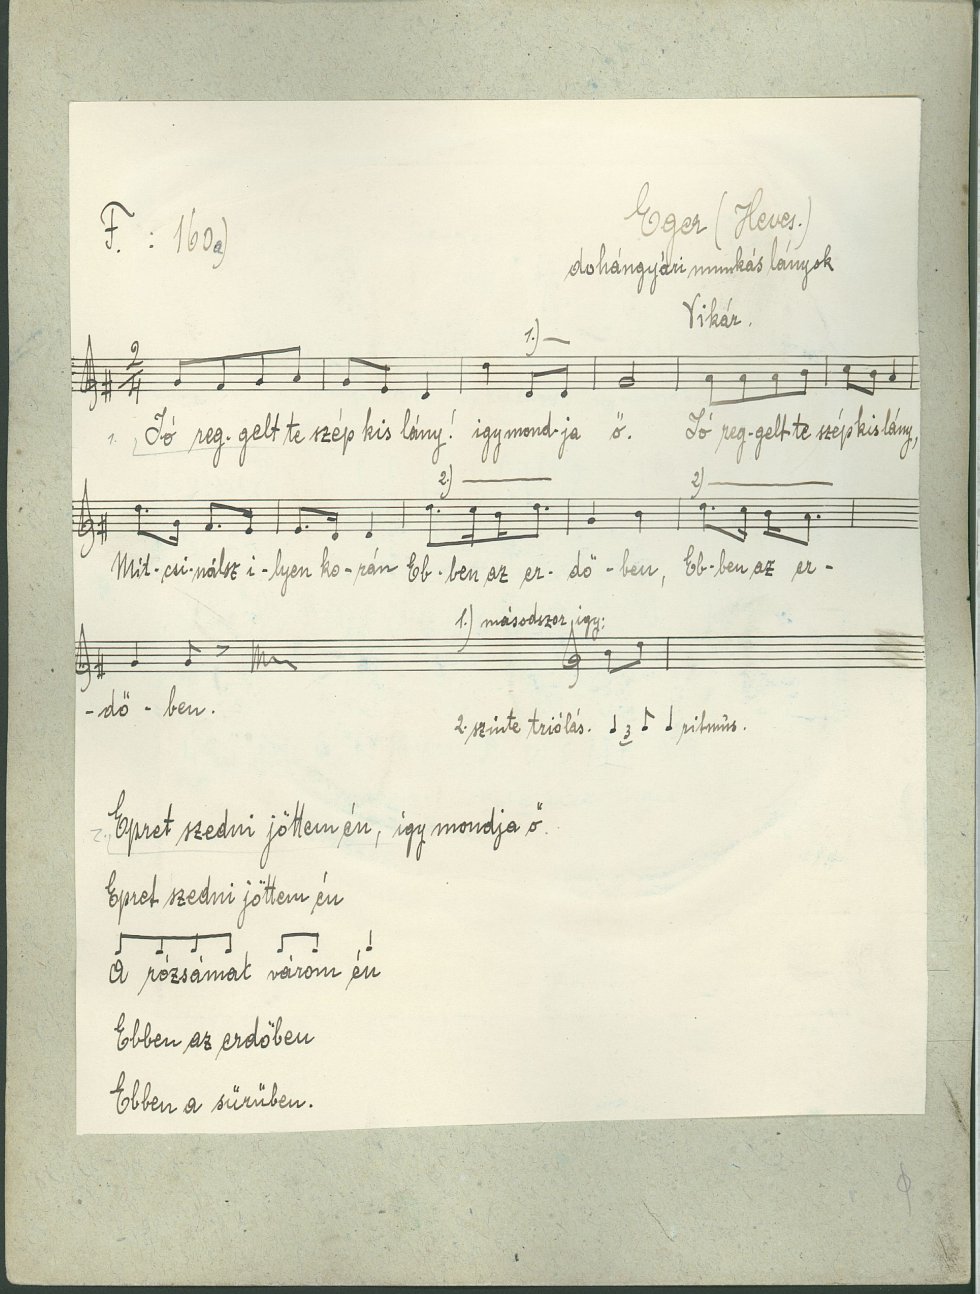 F. : 160a)
Eger (Heves.)
dohángyári munkás lányok
Vikár.
1.)
2/4
1. Jó reg-gelt te szép kis lány! igy mond-ja ő. Jó reg-gelt te szép kis lány,
2.) 2)
Mit-csi-nálsz i-lyen ko-rán Eb-ben az er-dö-ben, Eb-ben az er-
1.) másodszor igy:
-dö-ben.
2. szinte triólás. 3 ritmus.
2. Epret szedni jöttem én, igy mondja ő.
Epret szedni jöttem én
A rózsámat várom én
Ebben az erdöben
Ebben a sürüben.